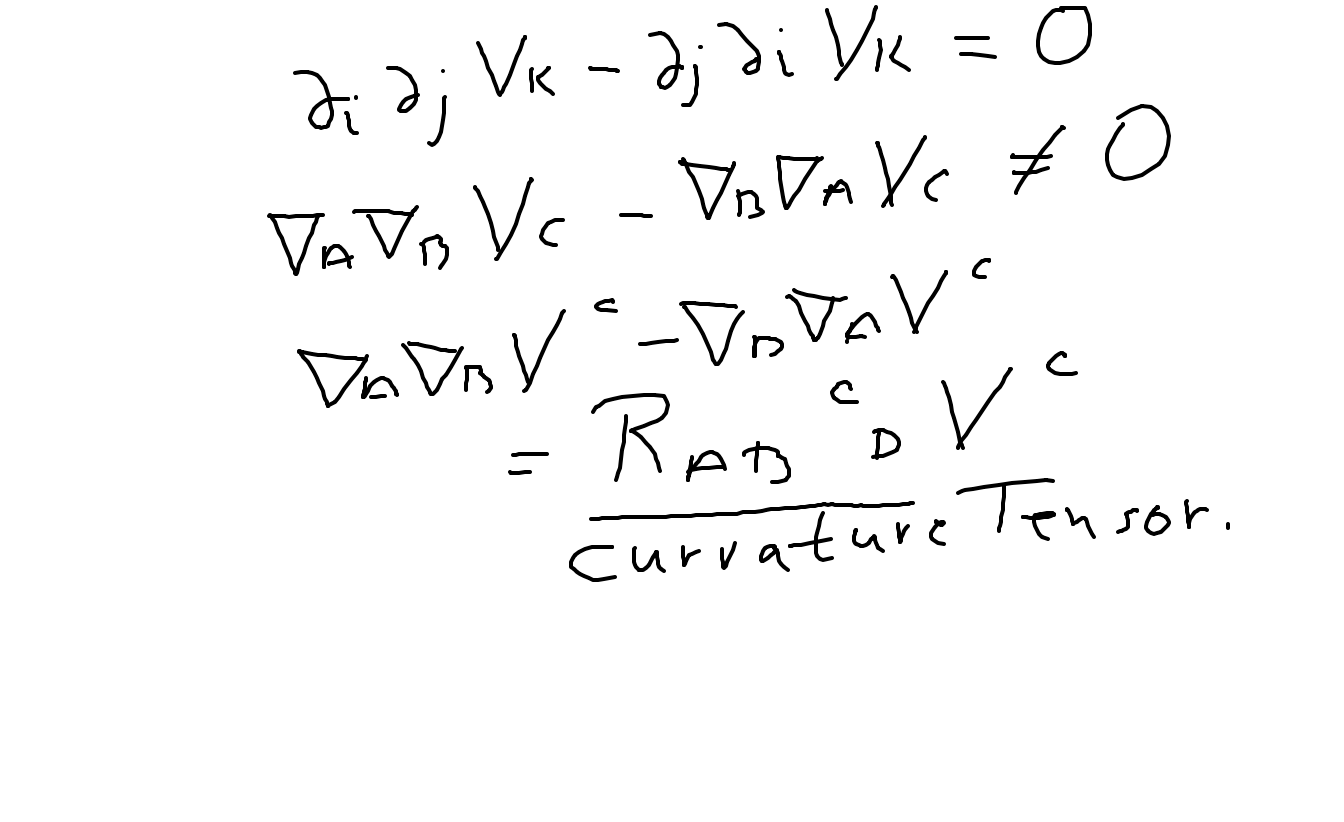 ∂i ∂j VK − ∂j ∂i VK = 0
∇A ∇B VC − ∇B ∇A VC ≠ 0
∇A ∇B V^C − ∇B ∇A V^C
= R_AB^C_D V^C
Curvature Tensor.